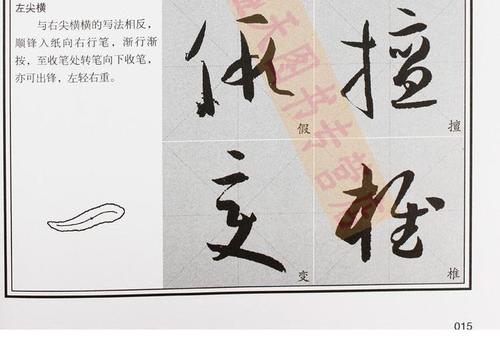 左尖横
与右尖横横的写法相反，
顺锋入纸向右行笔，渐行渐
按，至收笔处转笔向下收笔，
亦可出锋，左轻右重。
假
擅
变
椎
015